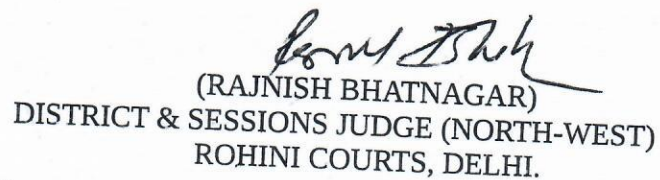 (RAJNISH BHATNAGAR)
DISTRICT & SESSIONS JUDGE (NORTH-WEST)
ROHINI COURTS, DELHI.